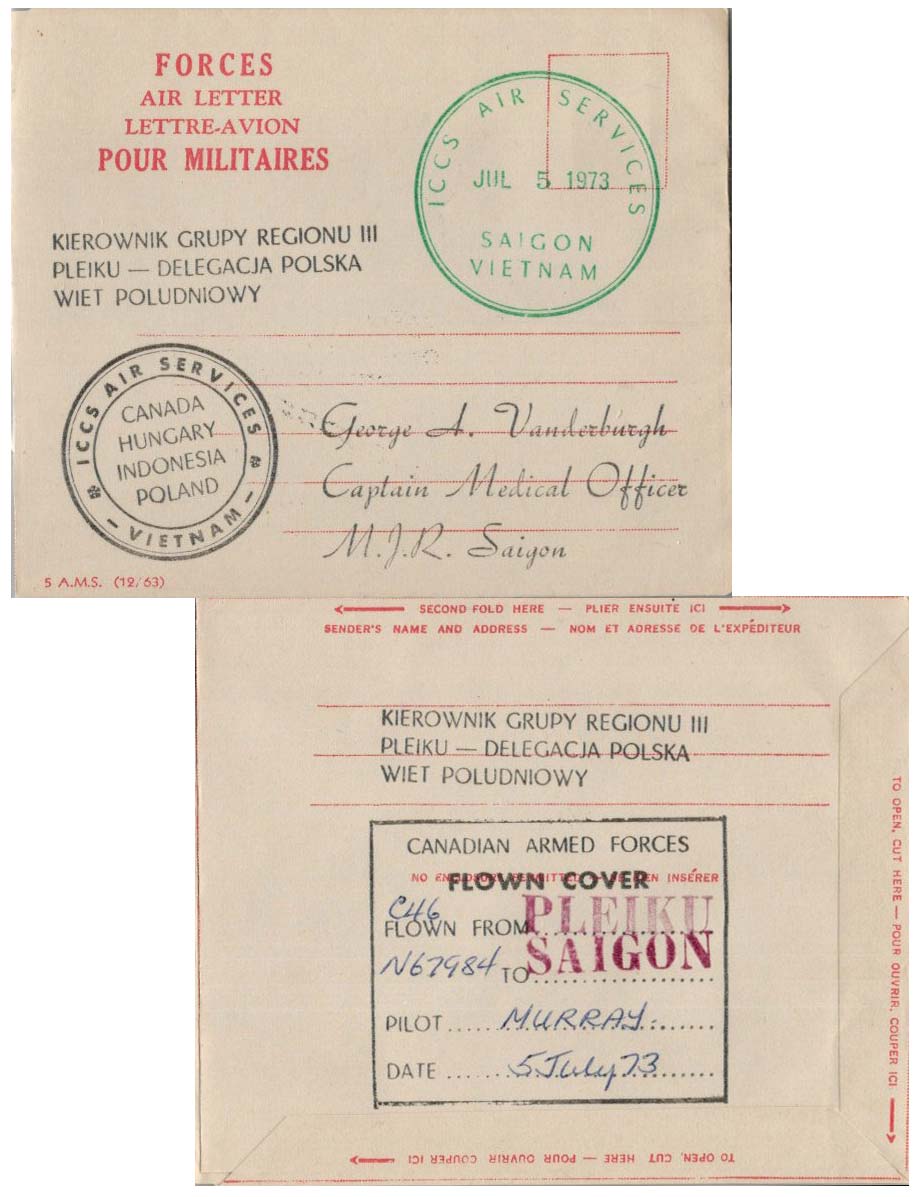 FORCES
AIR LETTER
LETTRE-AVION
POUR MILITAIRES
ICCS AIR SERVICES
JUL 5 1973
SAIGON
VIETNAM
KIEROWNIK GRUPY REGIONU III
PLEIKU — DELEGACJA POLSKA
WIET POLUDNIOWY
ICCS AIR SERVICES
CANADA
HUNGARY
INDONESIA
POLAND
— VIETNAM —
George A. Vanderburgh
Captain Medical Officer
M.J.R. Saigon
5 A.M.S. (12/63)
SECOND FOLD HERE — PLIER ENSUITE ICI
SENDER'S NAME AND ADDRESS — NOM ET ADRESSE DE L'EXPÉDITEUR
KIEROWNIK GRUPY REGIONU III
PLEIKU — DELEGACJA POLSKA
WIET POLUDNIOWY
CANADIAN ARMED FORCES
NO ENCLOSURE PERMITTED — NE RIEN INSÉRER
FLOWN COVER
C46
FLOWN FROM PLEIKU
N67984 TO SAIGON
PILOT ...... MURRAY
DATE ...... 5 July 73
TO OPEN, CUT HERE — POUR OUVRIR, COUPER ICI
TO OPEN, CUT HERE — POUR OUVRIR COUPER ICI